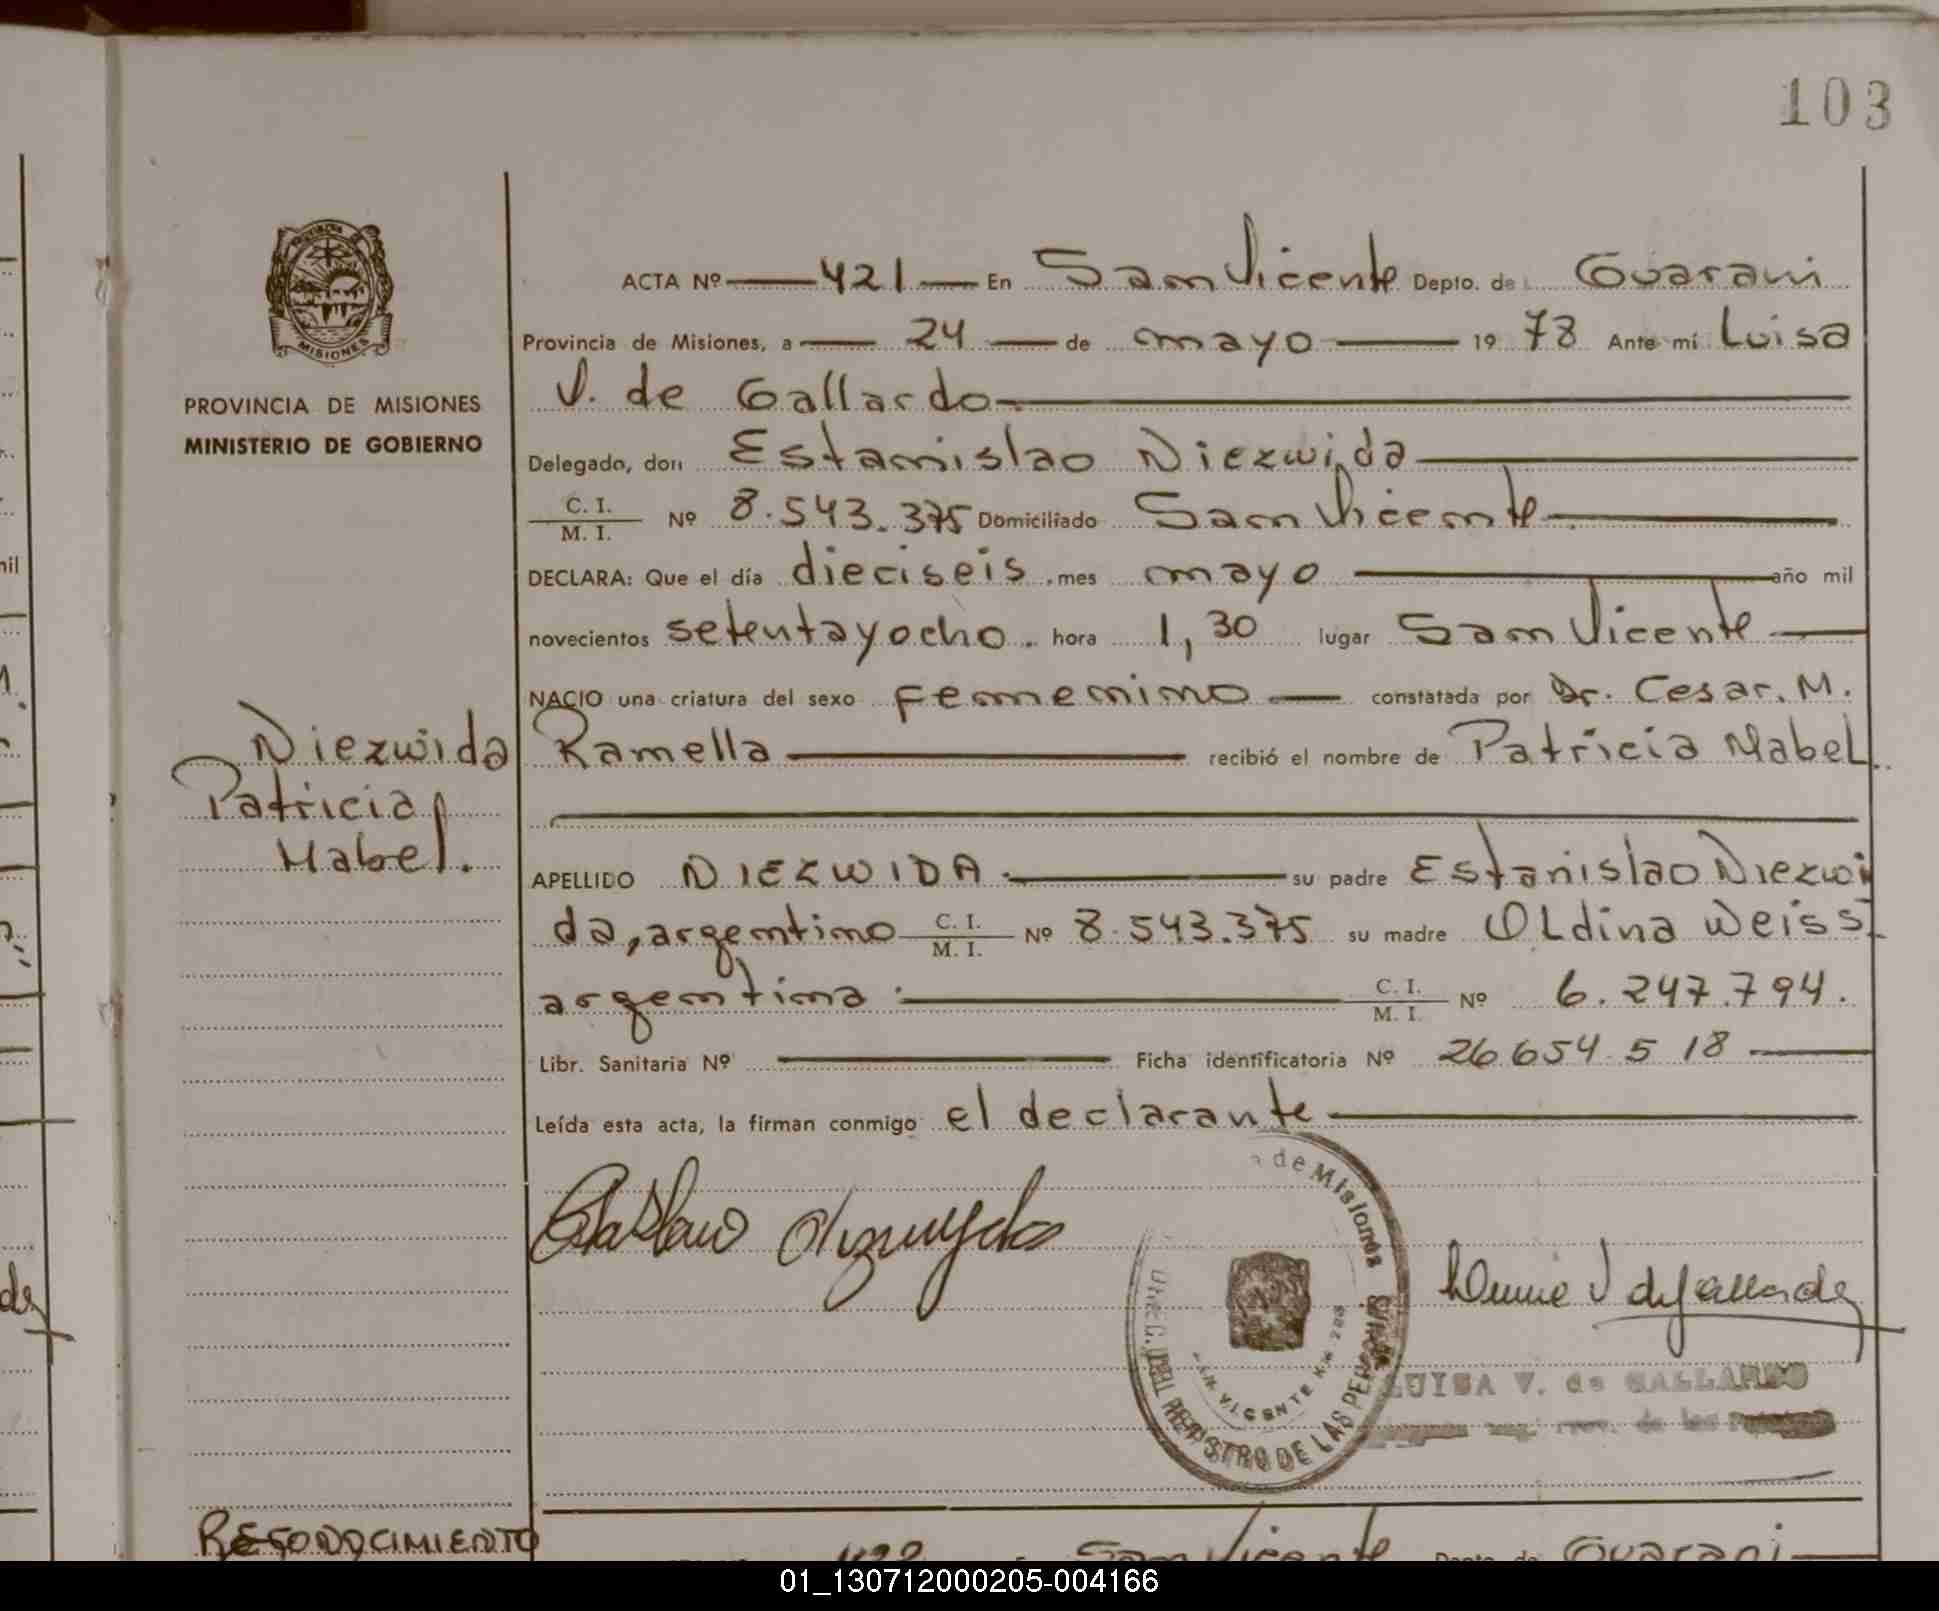 103
PROVINCIA DE MISIONES
MINISTERIO DE GOBIERNO
ACTA Nº 421 En San Vicente Depto. de Guarani
Provincia de Misiones, a 24 de mayo 1978 Ante mí Luisa
V. de Gallardo
Delegado, don Estanislao Niezwida
C. I.
M. I. Nº 8.543.375 Domiciliado San Vicente
DECLARA: Que el día dieciseis mes mayo año mil
novecientos setentayocho. hora 1,30 lugar San Vicente
NACIO una criatura del sexo femenino constatada por Dr. Cesar. M.
Ramella recibió el nombre de Patricia Mabel
Niezwida
Patricia
Mabel.
APELLIDO NIEZWIDA. su padre Estanislao Niezwi
da, argentino C. I. M. I. Nº 8.543.375 su madre Oldina Weiss
argentina. C. I. M. I. Nº 6.247.794.
Libr. Sanitaria Nº Ficha identificatoria Nº 26 654 518
Leída esta acta, la firman conmigo el declarante
de Misiones
REGISTRO DE LAS PERSONAS
SAN VICENTE
V de Gallardo
LUISA V. de GALLARDO
RECONOCIMIENTO
422 San Vicente Depto. de Guarani
01_130712000205-004166